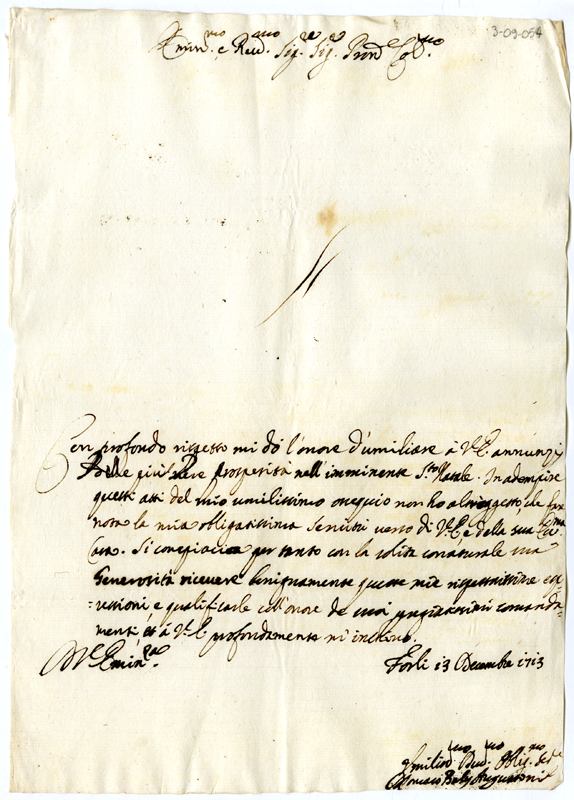 3-09-054
Emin.mo e Rev.mo Sig.re Sig.re Pron.e Col.mo
Con profondo rispetto mi dò l'onore d'umiliare à V.E. annunzj
delle più prosperità nell'imminente S.to Natale. In adempire
questi atti del mio umilissimo ossequio non hò altro oggetto che far
nota la mia obligatissima verso di V.E. e della sua
Casa. Si compiaccia per tanto con la solita connaturale sua
Generosità ricevere benignamente queste mie rispettosissime es-
=pressioni e qualificarle coll'onore de suoi pregiatissimi comanda=
menti, et à V.E. profondamente m'inchino.
Di V.E. Emin.ma
Forlì 13 Decembre 1713
Umilis.mo Dev.mo Oblig.mo Ser.e